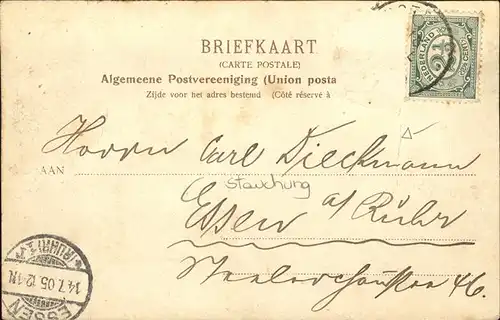 BRIEFKAART
(CARTE POSTALE)
Algemeene Postvereeniging (Union posta
Zijde voor het adres bestemd (Côté réservé à
NEDERLAND
2½
Herrn Carl Dieckmann
AAN
Stauchung
Essen a/Ruhr
46.
ESSEN
14.7.05.12-1N.
(RUHR)